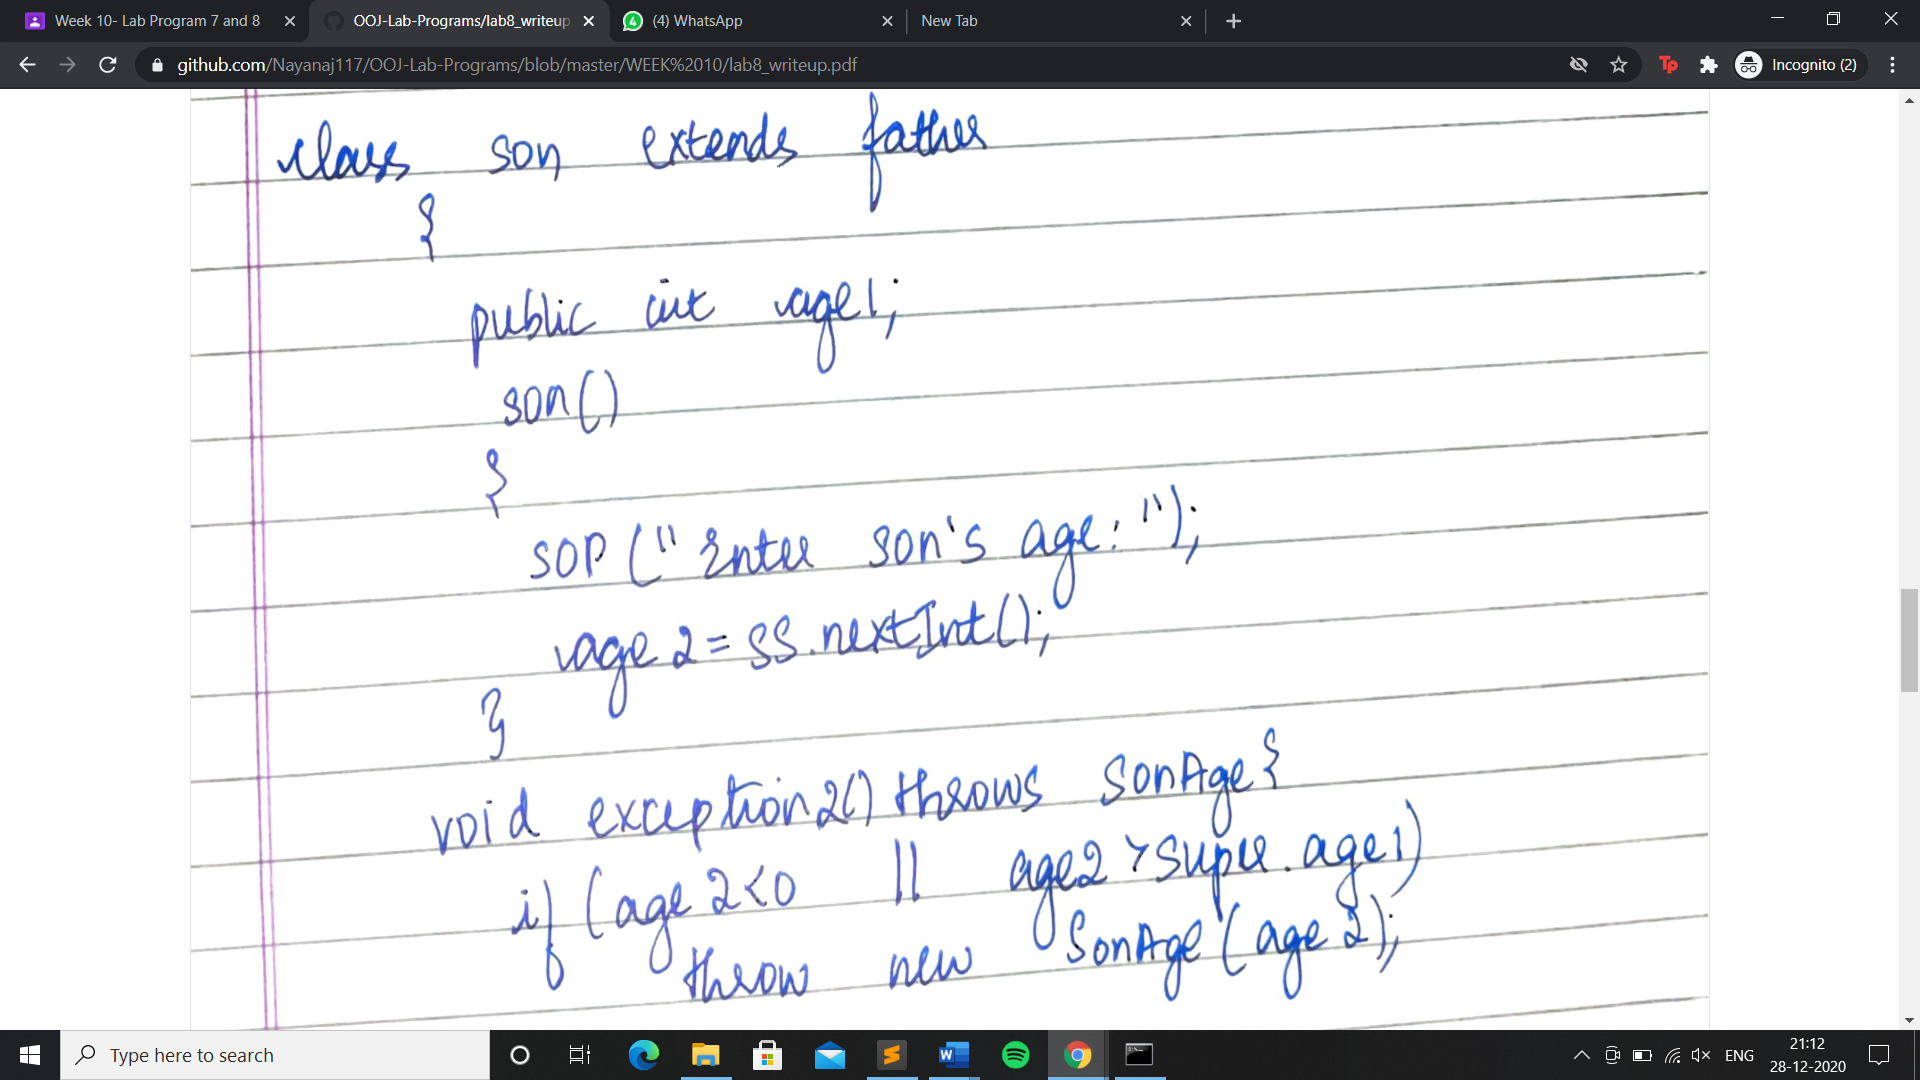 Week 10- Lab Program 7 and 8
OOJ-Lab-Programs/lab8_writeup
(4) WhatsApp
New Tab
github.com/Nayanaj117/OOJ-Lab-Programs/blob/master/WEEK%2010/lab8_writeup.pdf
Incognito (2)
class son extends father
{
public int age1;
son()
{
SOP ("Enter son's age: ");
age2 = SS.nextInt();
}
void exception2() throws SonAge{
if (age2<0 || age2>super.age1)
throw new SonAge(age2);
Type here to search
ENG
21:12
28-12-2020